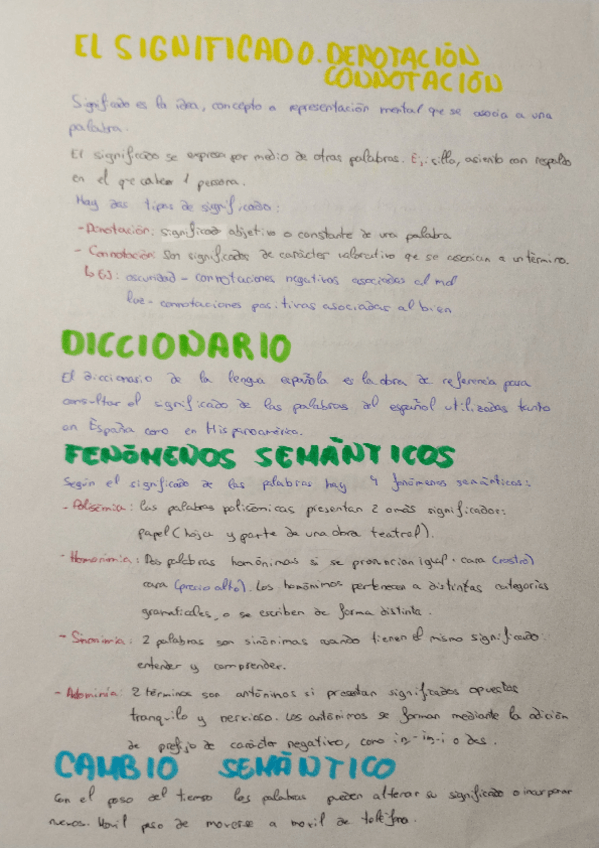 EL SIGNIFICADO. DENOTACIÓN
CONNOTACIÓN
Significado es la idea, concepto o representación mental que se asocia a una
palabra.
El significado se expresa por medio de otras palabras. Ej: silla, asiento con respaldo
en el que cabe 1 persona.
Hay dos tipos de significado:
- Denotación: significado objetivo o constante de una palabra
- Connotación: Son significados de carácter valorativo que se asocian a un término.
↳ Ej: oscuridad - connotaciones negativas asociadas al mal
luz - connotaciones positivas asociadas al bien
DICCIONARIO
El diccionario de la lengua española es la obra de referencia para
consultar el significado de las palabras del español utilizadas tanto
en España como en Hispanoamérica.
FENÓMENOS SEMÁNTICOS
Según el significado de las palabras hay 4 fenómenos semánticos:
- Polisemia: las palabras polisémicas presentan 2 o más significados:
papel (hoja y parte de una obra teatral).
- Homonimia: Dos palabras homónimas si se pronuncian igual. cara (rostro)
cara (precio alto). Los homónimos pertenecen a distintas categorías
gramaticales, o se escriben de forma distinta.
- Sinonimia: 2 palabras son sinónimas cuando tienen el mismo significado:
entender y comprender.
- Antonimia: 2 términos son antónimos si presentan significados opuestos
tranquilo y nervioso. Los antónimos se forman mediante la adición
de prefijo de carácter negativo, como in-im-i o des.
CAMBIO SEMÁNTICO
Con el paso del tiempo las palabras pueden alterar su significado o incorporar
nuevos. Móvil paso de moverse a movil de teléfono.